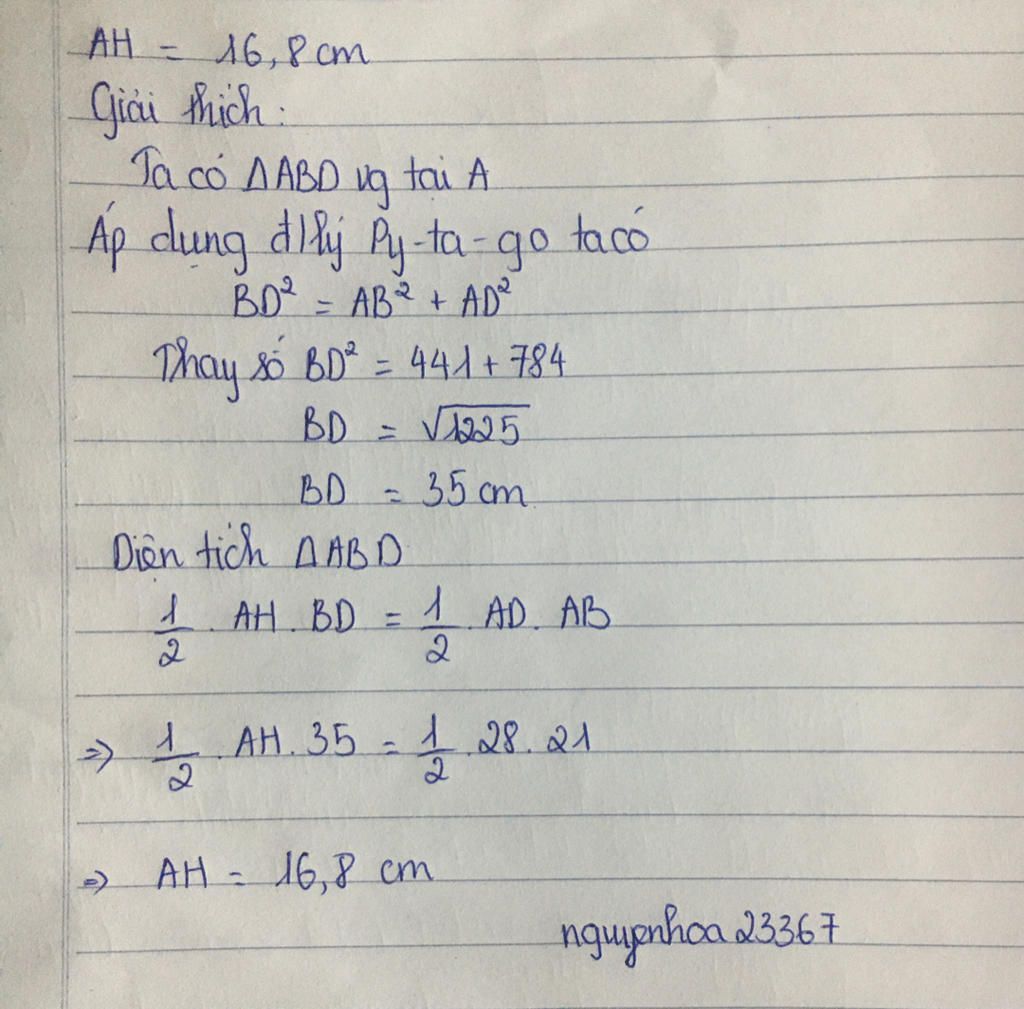 AH = 16,8 cm
Giải thích:
Ta có ΔABD vg tại A
Áp dụng đ/lý Py-ta-go ta có
BD² = AB² + AD²
Thay số BD² = 441 + 784
BD = √1225
BD = 35 cm
Diện tích ΔABD
1/2 . AH . BD = 1/2 . AD . AB
⇒ 1/2 . AH . 35 = 1/2 . 28 . 21
⇒ AH = 16,8 cm
nguyenhoa23367